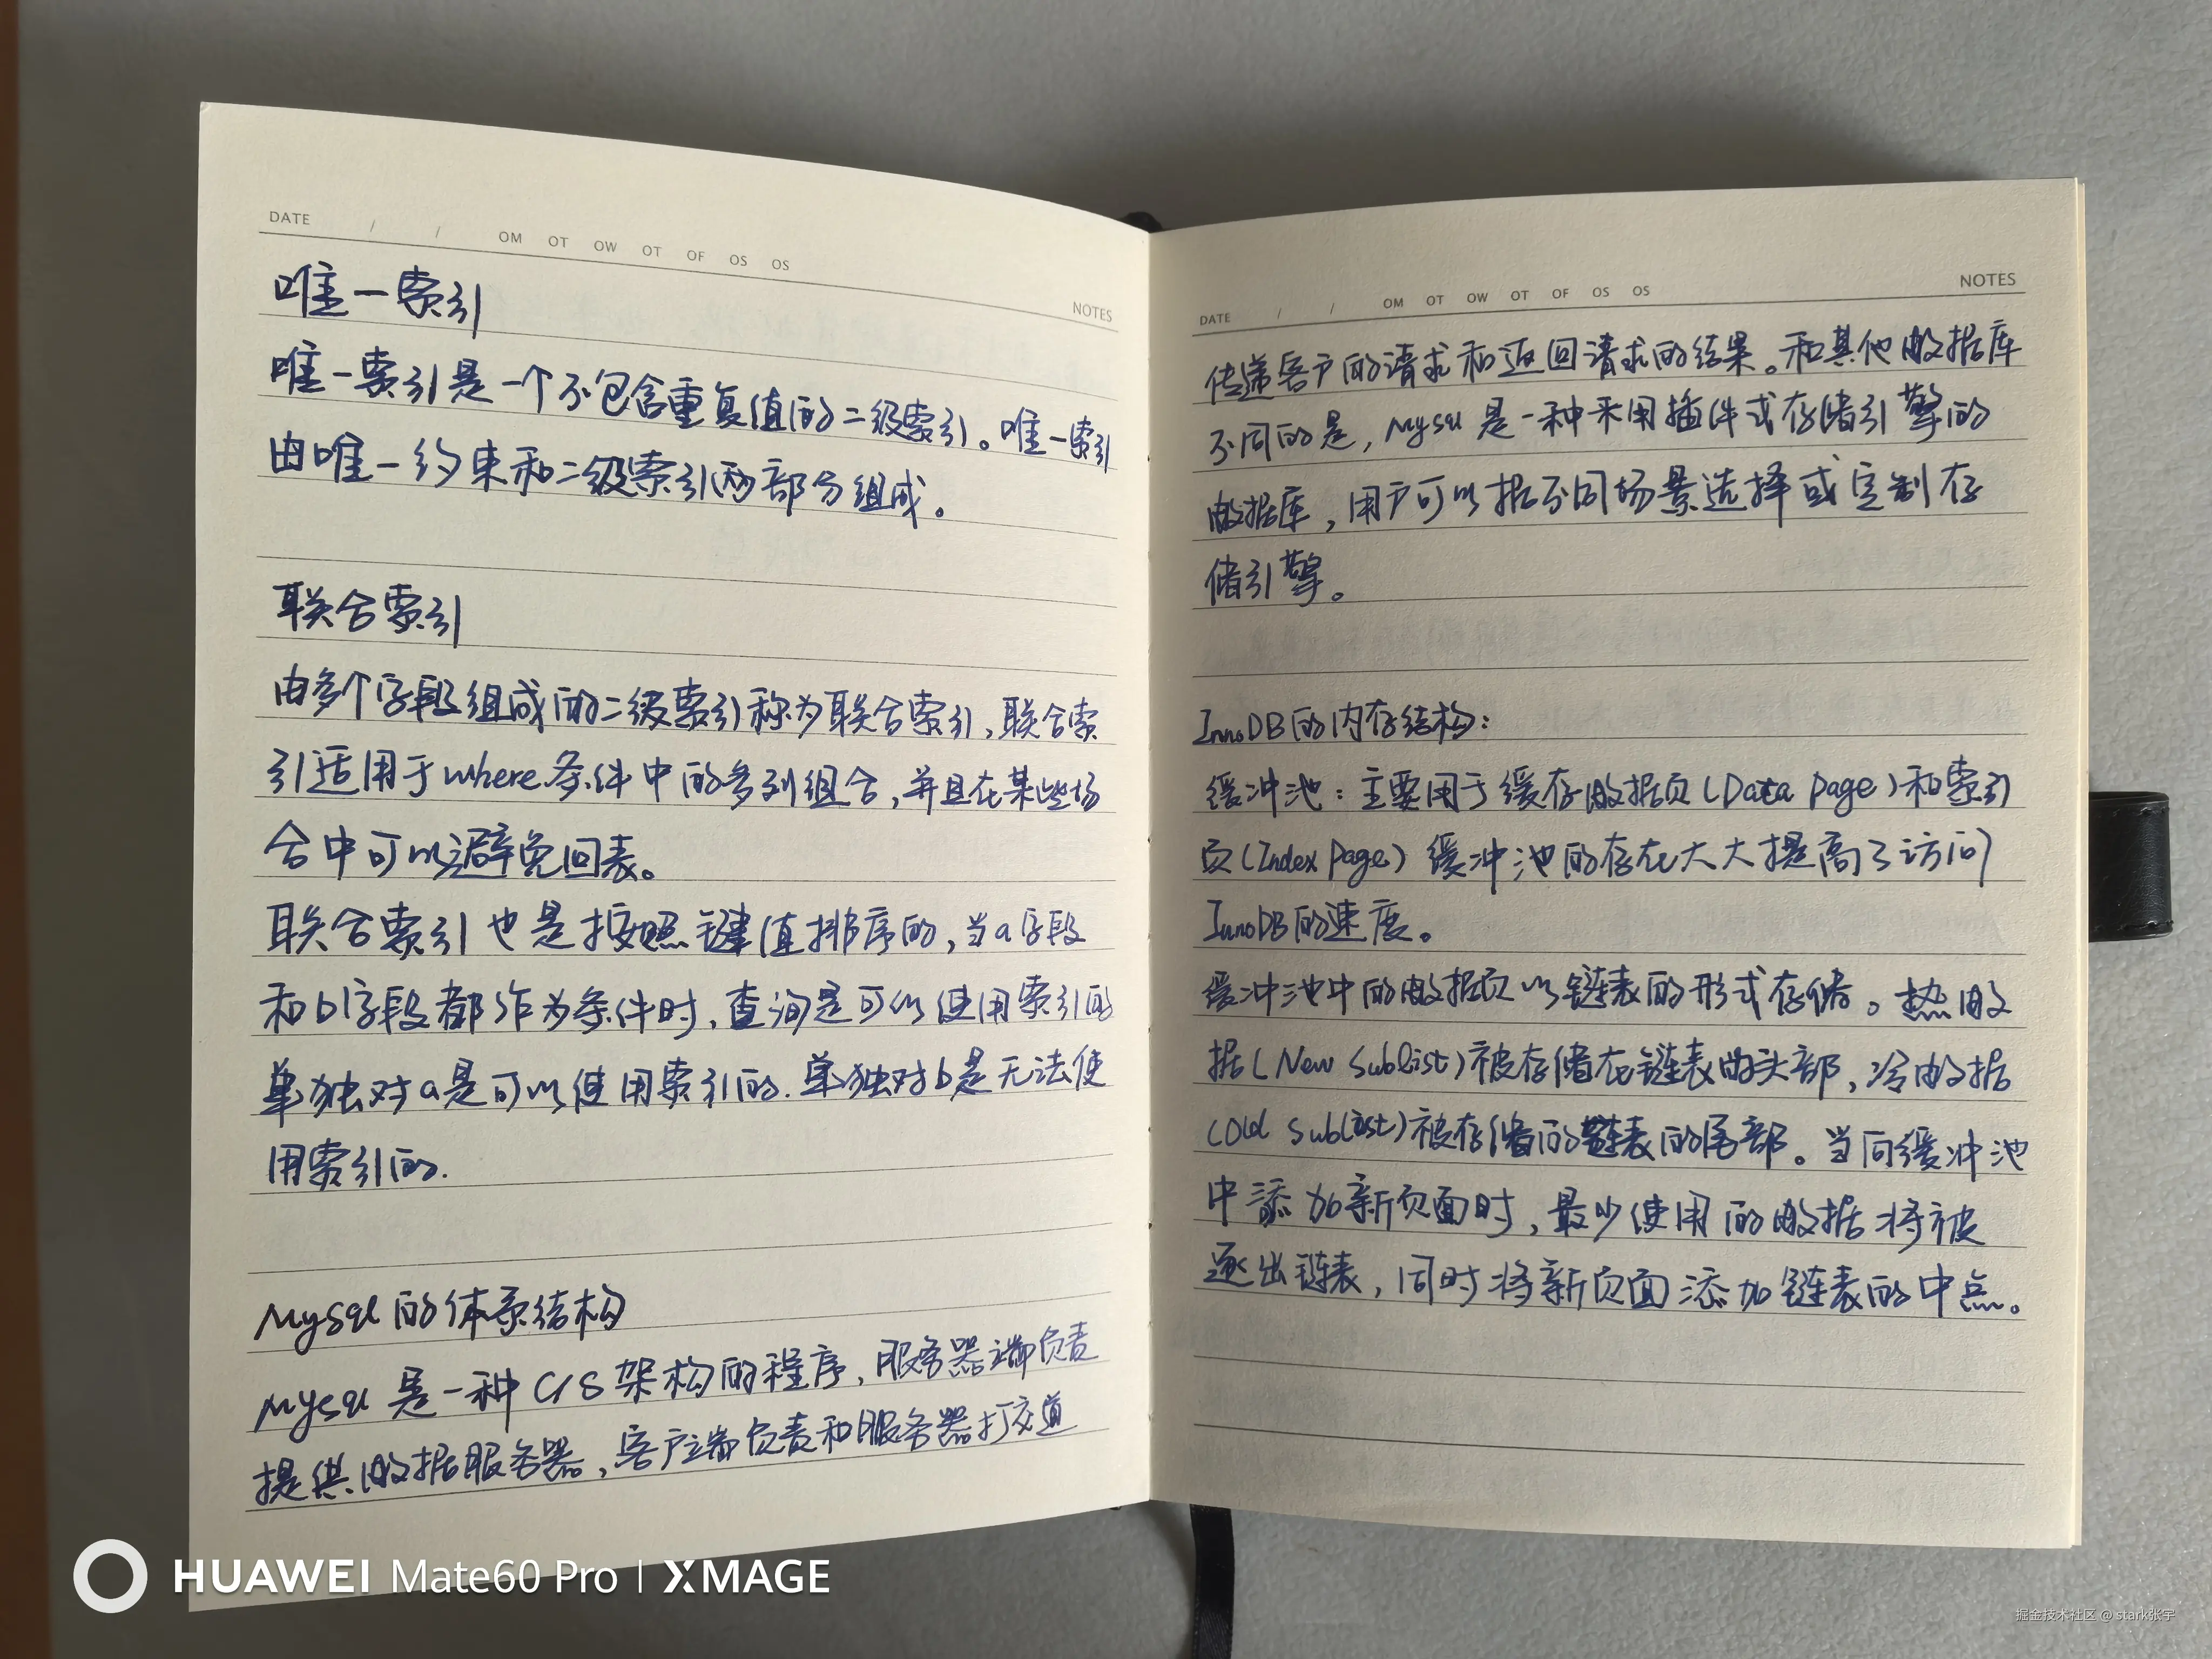 DATE / / OM OT OW OT OF OS OS
NOTES
唯一索引
唯一索引是一个不包含重复值的二级索引。唯一索引
由唯一约束和二级索引两部分组成。
联合索引
由多个字段组成的二级索引称为联合索引,联合索
引适用于where条件中的多列组合,并且在某些场
合中可以避免回表。
联合索引也是按照键值排序的,当a字段
和b字段都作为条件时,查询是可以使用索引的
单独对a是可以使用索引的.单独对b是无法使
用索引的.
Mysql的体系结构
Mysql是一种C/S架构的程序,服务器端负责
提供数据服务器,客户端负责和服务器打交道
DATE / / OM OT OW OT OF OS OS
NOTES
传递客户的请求和返回请求的结果。和其他数据库
不同的是,Mysql是一种采用插件式存储引擎的
数据库,用户可以据不同场景选择或定制存
储引擎。
InnoDB的内存结构:
缓冲池:主要用于缓存数据页(Data Page)和索引
页(Index Page)缓冲池的存在大大提高了访问
InnoDB的速度。
缓冲池中的数据页以链表的形式存储。热数
据(New Sublist)被存储在链表的头部,冷数据
(Old Sublist)被存储的链表的尾部。当向缓冲池
中添加新页面时,最少使用的数据将被
逐出链表,同时将新页面添加链表的中点。
HUAWEI Mate60 Pro | XMAGE
掘金技术社区 @ stark张宇